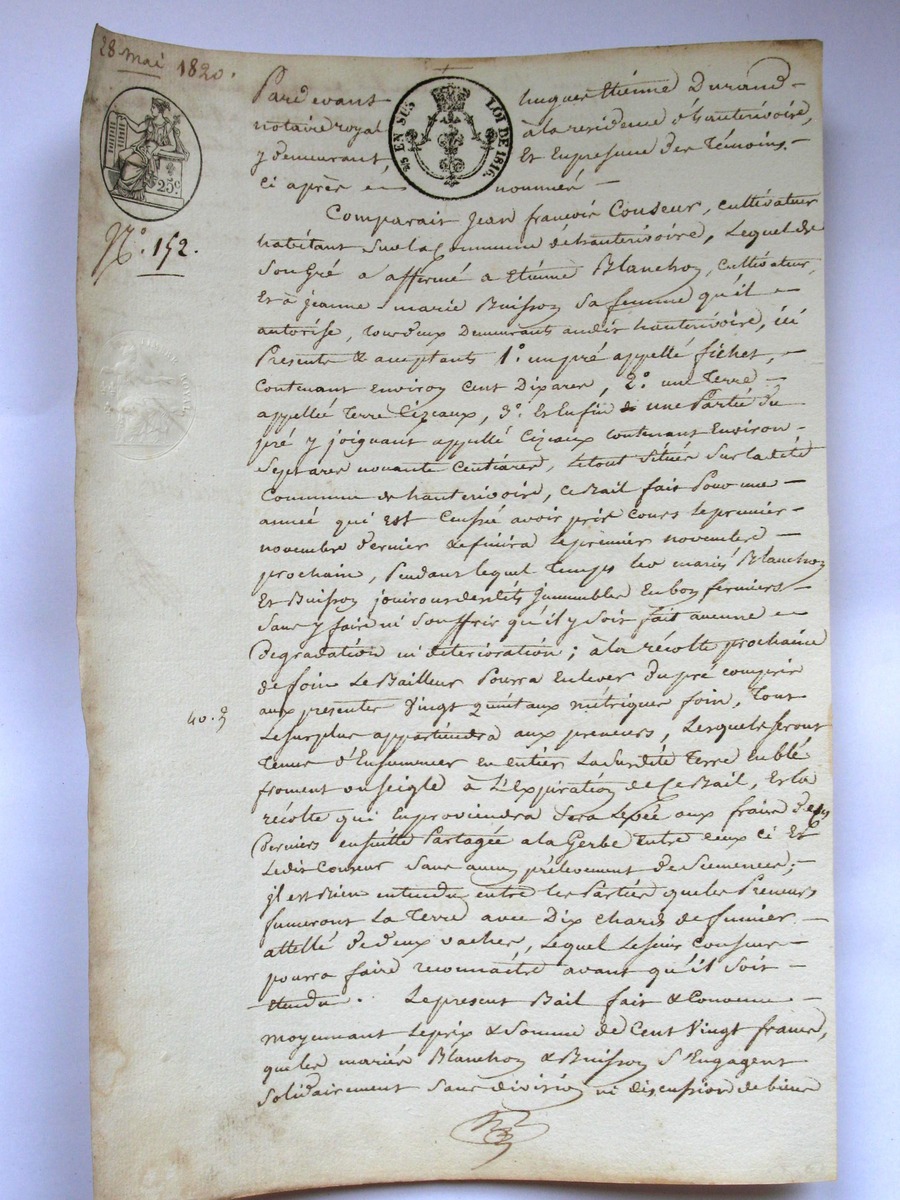 28 mai 1820.
25 EN SUS
LOI DE 1816.
25c.
N.º 152.
40.
Pardevant hugues Etiénne Durand
notaire royal à la residence d'hauterivoire,
y demeurant Et En presence des Témoins
ci après né nommés
Comparait Jean françois Couseur, cultivateur
habitant Sur la Commune d'hauterivoire, Lequel de
Son Gré a affermé a Etiénne Blanchon, cultivateur,
Et à jeanne marie Buisson Sa femme qu'il
autorise, tous deux Demeurants audit hauterivoire, ici
Presents & acceptants 1º un pré appellé fichet,
Contenant Environ Cent Dix ares, 2º une Terre
appellée Terre Cizeaux, 3º Et Enfin une Partie du
pré y joignant appellé Cizeaux contenant Environ
Sept ares nonante Centiares, le tout Situés Sur la dité
Commune de hauterivoire, ce Bail fait Pour une
année qui Est Censée avoir pris Cours le premier
novembre dernier & finira le premier novembre
prochain, Pendant lequel Temps les mariés Blanchon
Et Buisson jouiront desdits Immeubles En bon fermiers
Sans y faire ni Souffrir qu'il y Soit fait aucune
Dégradation ni détérioration; à la récolte prochaine
de foin Le Bailleur Pourra Enlever du pré compris
aux presentes Vingt quintaux métriques foin, Tout
Le Surplus appartiendra aux preneurs, Lesquels Seront
Tenus d'Ensemencer En entier La Susdité Terre En blé
froment ou Seigle à L'Expiration de Ce Bail, Et la
récolte qui En proviendra Sera Levée aux frais de ces
Derniers ensuite Partagée a la Gerbe entre Eux ci Et
Ledit Couseur Sans aucun prélevement de Semences;
il est Bien entendu entre les Parties que les Preneurs
fumeront La Terre avec Dix chars de fumier
attellé de deux vaches, Lequel Couseur
pourra faire reconnaître avant qu'il Soit
étendu. Le present Bail fait & Convenu
moyennant Le prix & Somme de Cent Vingt francs,
que les mariés Blanchon & Buisson S'Engagent
Solidairement Sans division ni discussion de biens